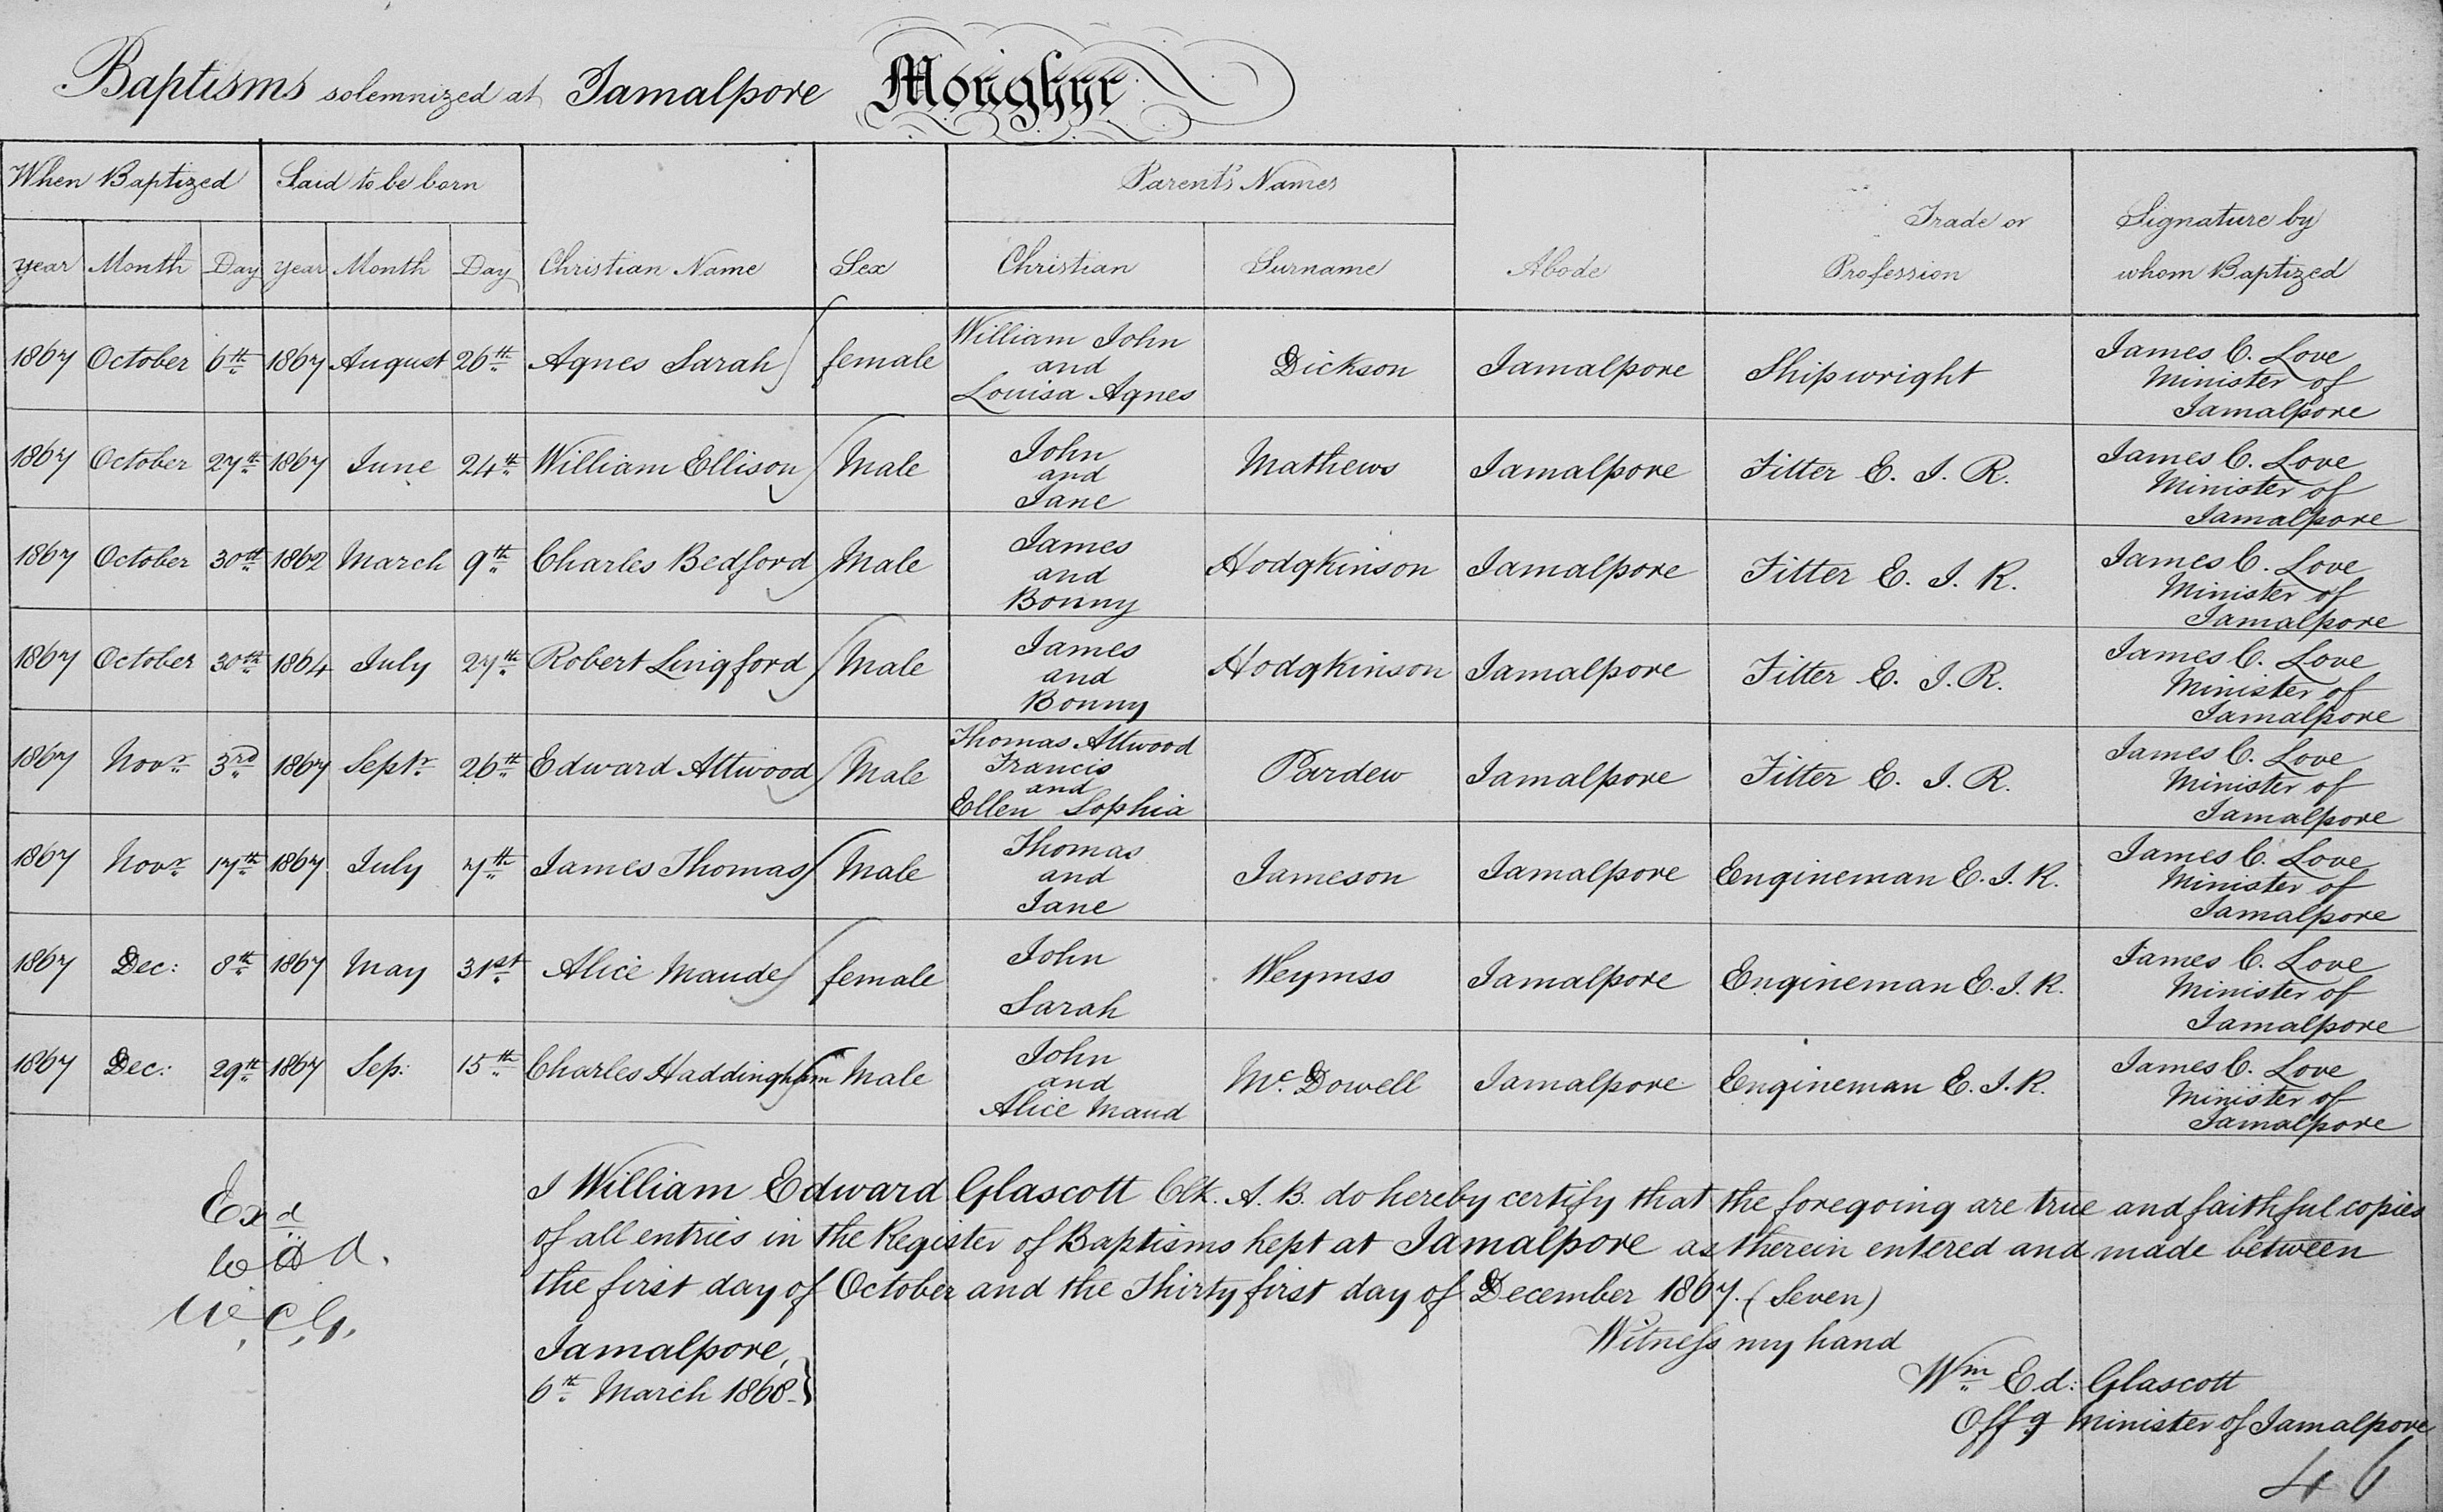 Baptisms solemnized at Jamalpore Monghyr
When Baptized Said to be born Parent's Names
Trade or Signature by
year Month Day year Month Day Christian Name Sex Christian Surname Abode Profession whom Baptized
1867 October 6th 1867 August 26th Agnes Sarah female William John and Louisa Agnes Dickson Jamalpore Shipwright James C. Love Minister of Jamalpore
1867 October 27th 1867 June 24th William Ellison Male John and Jane Mathews Jamalpore Fitter E. I. R. James C. Love Minister of Jamalpore
1867 October 30th 1862 March 9th Charles Bedford Male James and Bonny Hodgkinson Jamalpore Fitter E. I. R. James C. Love Minister of Jamalpore
1867 October 30th 1864 July 27th Robert Lingford Male James and Bonny Hodgkinson Jamalpore Fitter E. I. R. James C. Love Minister of Jamalpore
1867 Novr 3rd 1867 Septr 26th Edward Attwood Male Thomas Attwood Francis and Ellen Sophia Pardew Jamalpore Fitter E. I. R. James C. Love Minister of Jamalpore
1867 Novr 17th 1867 July 7th James Thomas Male Thomas and Jane Jameson Jamalpore Engineman E. I. R. James C. Love Minister of Jamalpore
1867 Dec: 8th 1867 May 31st Alice Maude female John Sarah Weymss Jamalpore Engineman E. I. R. James C. Love Minister of Jamalpore
1867 Dec: 29th 1867 Sep: 15th Charles Haddingham Male John and Alice Maud Mc. Dowell Jamalpore Engineman E. I. R. James C. Love Minister of Jamalpore
I William Edward Glascott Clk. A. B. do hereby certify that the foregoing are true and faithful copies
of all entries in the Register of Baptisms kept at Jamalpore as therein entered and made between
the first day of October and the Thirty first day of December 1867. (Seven)
Exd
W.C.G.
Jamalpore,
6th March 1868.
Witness my hand
Wm Ed: Glascott
Offg Minister of Jamalpore
46